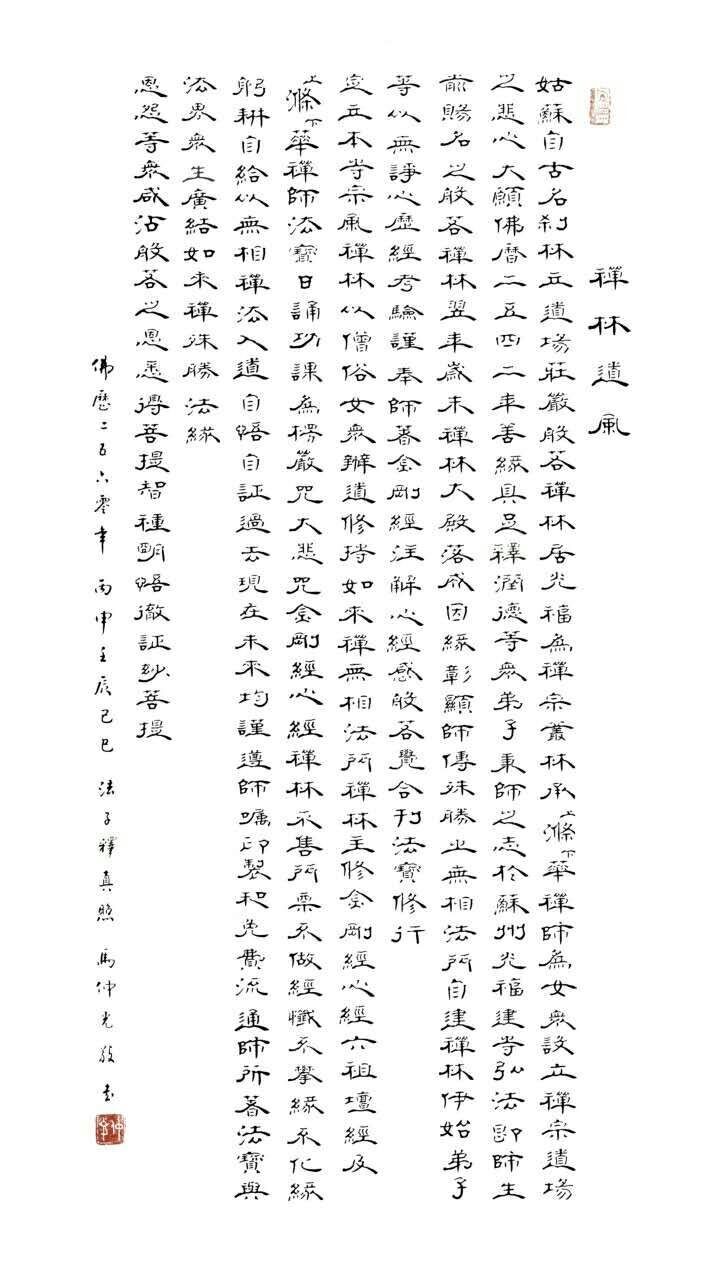 禪林道風
姑蘇自古名刹林立道場莊嚴般若禪林居光福為禪宗叢林承上滌下華禪師為女衆設立禪宗道場
之悲心大願佛曆二五四二年善緣具足釋潤德等衆弟子秉師之志於蘇州光福建寺弘法即師生
前賜名之般若禪林翌年歲末禪林大殿落成因緣彰顯師傳殊勝之無相法門自建禪林伊始弟子
等以無諍心歷經考驗謹奉師著金剛經注解心經感般若覺合刊法寶修行
並立本寺宗風禪林以僧俗女衆辦道修持如來禪無相法門禪林主修金剛經心經六祖壇經及
上滌下華禪師法寶日誦功課為楞嚴咒大悲咒金剛經心經禪林不售門票不做經懺不攀緣不化緣
躬耕自給以無相禪法入道自悟自証過去現在未來均謹遵師囑印製和免費流通師所著法寶與
法界衆生廣結如來禪殊勝法緣
恩怨等衆咸沾般若之恩悉得菩提智種明悟徹証妙菩提
佛歷二五六零年 丙申壬辰己巳 法子釋真照 馬仲光敬書